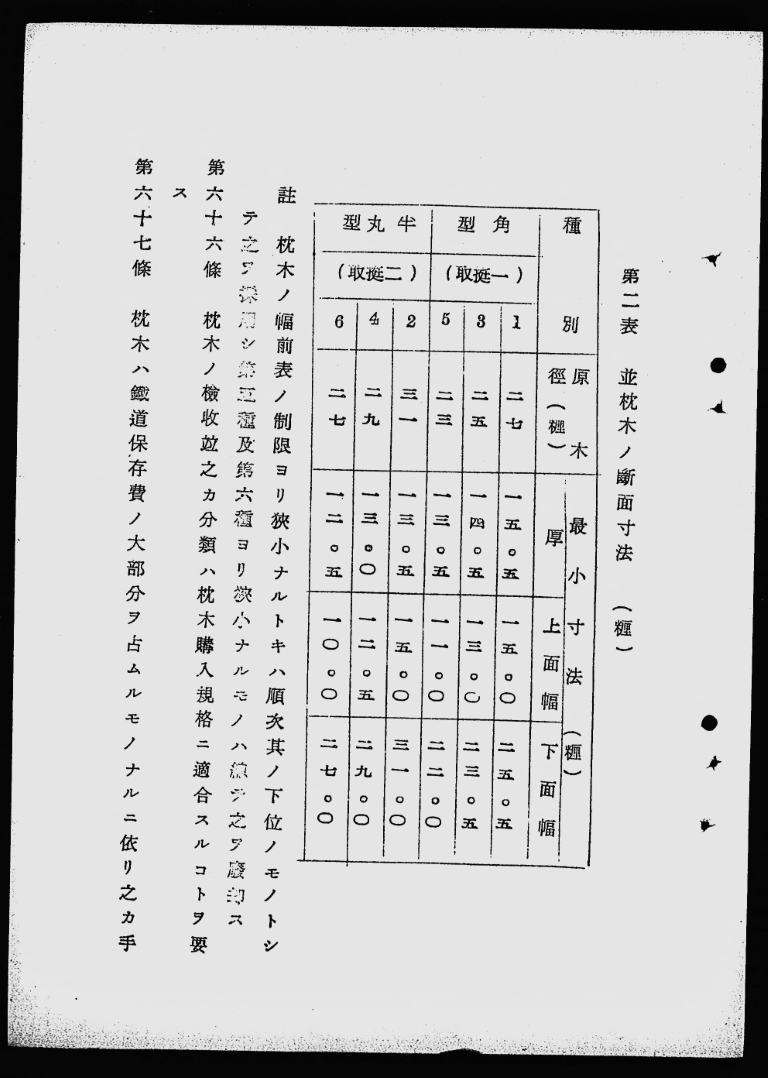 第二表　並枕木ノ斷面寸法　（糎）
種別
原木徑（糎）
最小寸法（糎）
厚
上面幅
下面幅
角型
（一挺取）
1
二七
一五。五
一五。〇
二五。五
3
二五
一四。五
一三。〇
二三。五
5
二三
一三。五
一一。〇
二二。〇
半丸型
（二挺取）
2
三一
一三。五
一五。〇
三一。〇
4
二九
一三。〇
一二。五
二九。〇
6
二七
一二。五
一〇。〇
二七。〇
註　枕木ノ幅前表ノ制限ヨリ狹小ナルトキハ順次其ノ下位ノモノトシ
テ之ヲ採用シ第五種及第六種ヨリ狹小ナルモノハ總テ之ヲ廢却ス
第六十六條　枕木ノ檢收竝之カ分類ハ枕木購入規格ニ適合スルコトヲ要
ス
第六十七條　枕木ハ鐵道保存費ノ大部分ヲ占ムルモノナルニ依リ之カ手